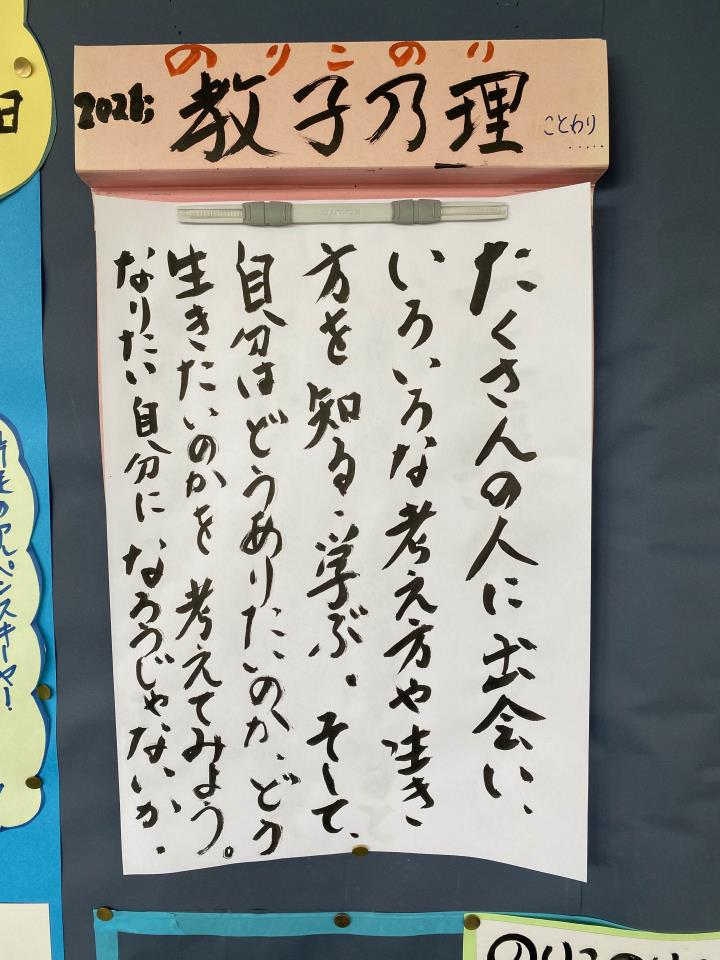 のりこのり
2026;
教子乃理
ことわり
たくさんの人に出会い、
いろいろな考え方や生き
方を知る・学ぶ。そして、
自分はどうありたいのか、どう
生きたいのかを考えてみよう。
なりたい自分になろうじゃないか。
日
のアルペンスキーヤー!